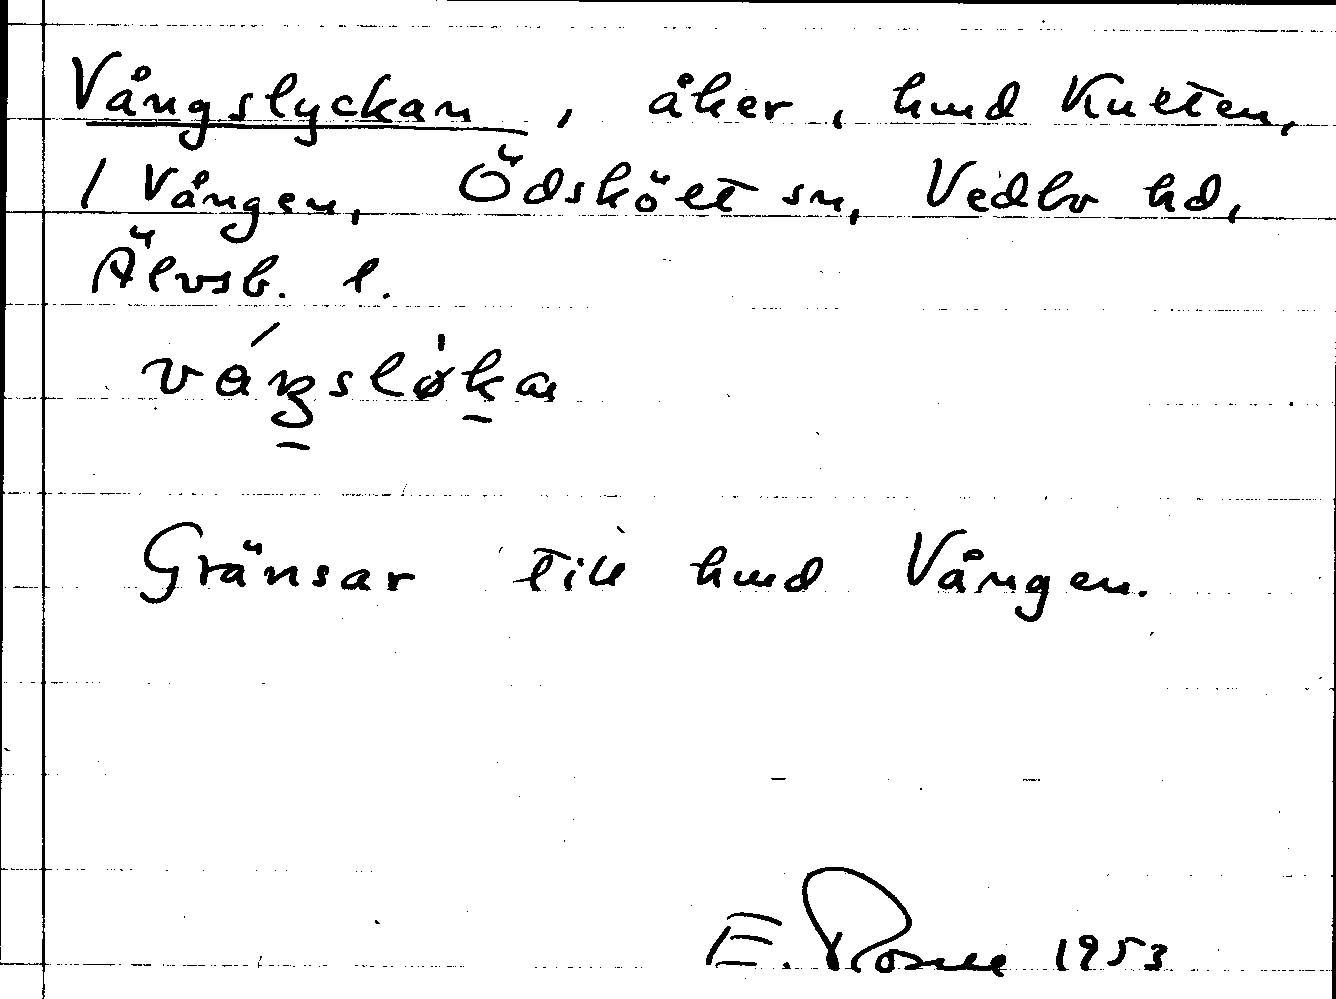 Vångslyckan, åker, hmd Kutten,
1 Vången, Ödskölt sn, Vedbo hd,
Älvsb. l.
Gränsar till hmd Vången.
E. 1953